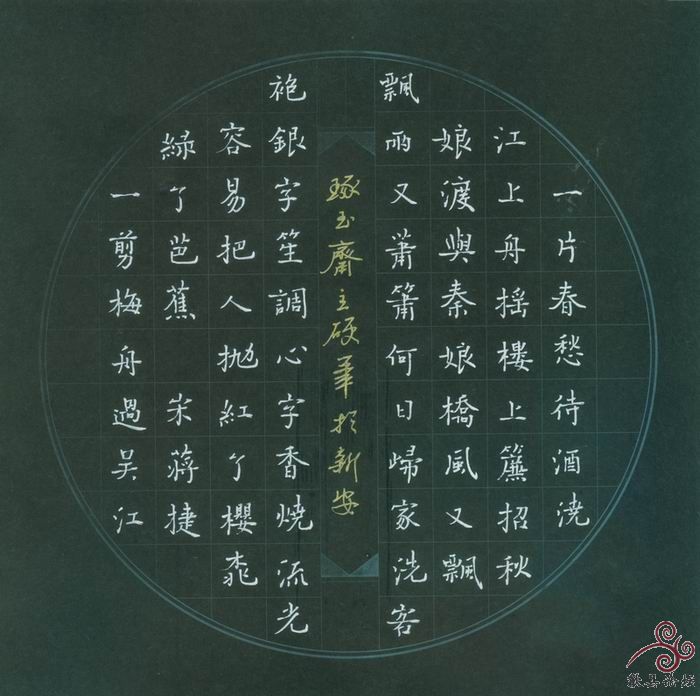 一片春愁待酒澆
江上舟摇樓上簾招秋
娘渡與秦娘橋風又飄
飄雨又蕭簫何日歸家洗客
琢玉齋主硬筆於新安
袍銀字笙調心字香燒流光
容易把人抛紅了櫻桃
緑了芭蕉 宋蔣捷
一剪梅舟過吴江